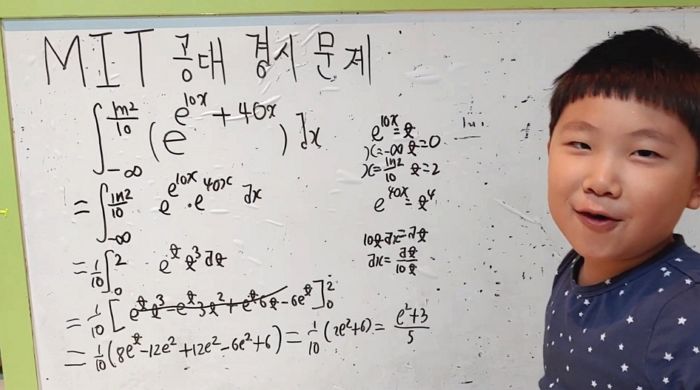 MIT 공대 경시 문제
∫_{-∞}^{ln2/10} (e^{e^{10x}+40x}) dx
= ∫_{-∞}^{ln2/10} e^{e^{10x}}·e^{40x} dx
= 1/10 ∫_0^2 e^t t^3 dt
= 1/10 [e^t t^3 - e^t 3t^2 + e^t 6t - 6e^t]_0^2
= 1/10 (8e^2 - 12e^2 + 12e^2 - 6e^2 + 6) = 1/10 (2e^2 + 6) = (e^2+3)/5
e^{10x} = t
x = -∞ t = 0
x = ln2/10 t = 2
e^{40x} = t^4
10t dx = dt
dx = dt/10t